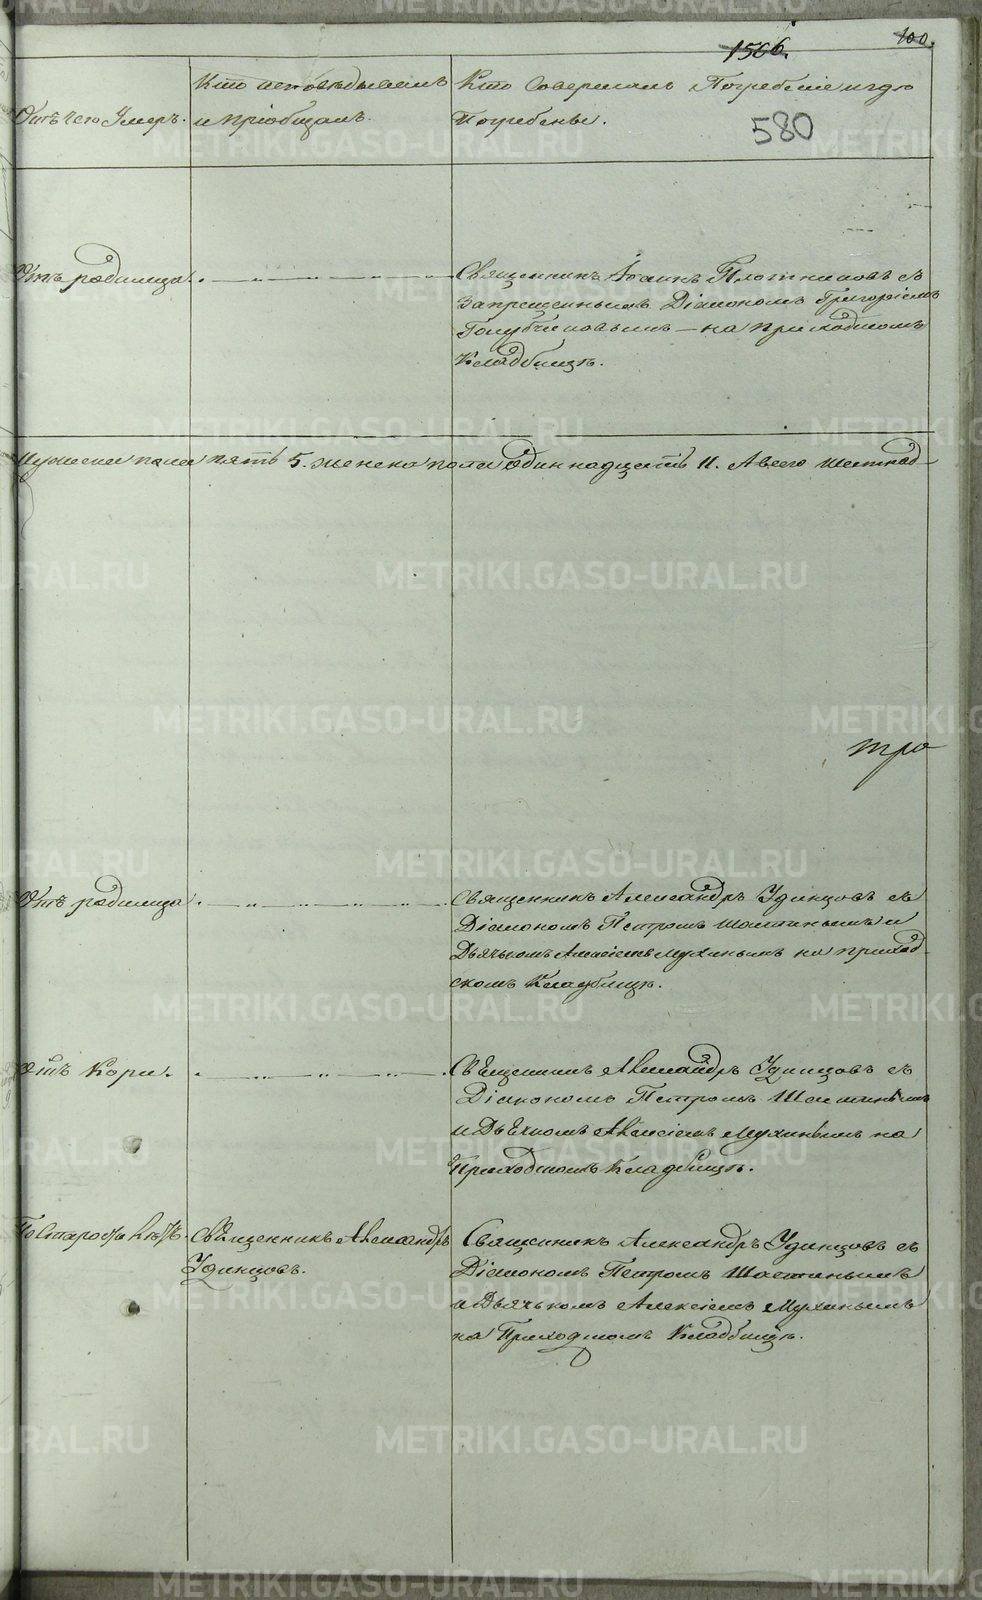 1566.
100.
Кто исповѣдывалъ
и пріобщалъ.
Отъ чего Умеръ.
Кто Совершалъ Погребеніе и гдѣ
Погребены.
580
Отъ родимца.
Священникъ Іоаннъ Плотниковъ съ
Запрещеннымъ Діакономъ Григоріемъ
Голубчиковымъ — на приходскомъ
Кладбищѣ.
Мужеска пола пять 5. женска пола Одиннадцать 11. А всего шестнад-
тро
Отъ родимца
Священникъ Александръ Удинцовъ съ
Діакономъ Петромъ Шастинымъ и
Дьячкомъ Алексіемъ Мухинымъ на приход-
скомъ Кладбищѣ.
Отъ Кори.
Священникъ Александръ Удинцовъ съ
Діакономъ Петромъ Шастинымъ
и Дьячкомъ Алексіемъ Мухинымъ на
Приходскомъ Кладбищѣ.
По Старости лѣтъ.
Священникъ Александръ
Удинцовъ.
Священникъ Александръ Удинцовъ съ
Діакономъ Петромъ Шастинымъ
и Дьячкомъ Алексіемъ Мухинымъ
на Приходскомъ Кладбищѣ.
METRIKI.GASO-URAL.RU